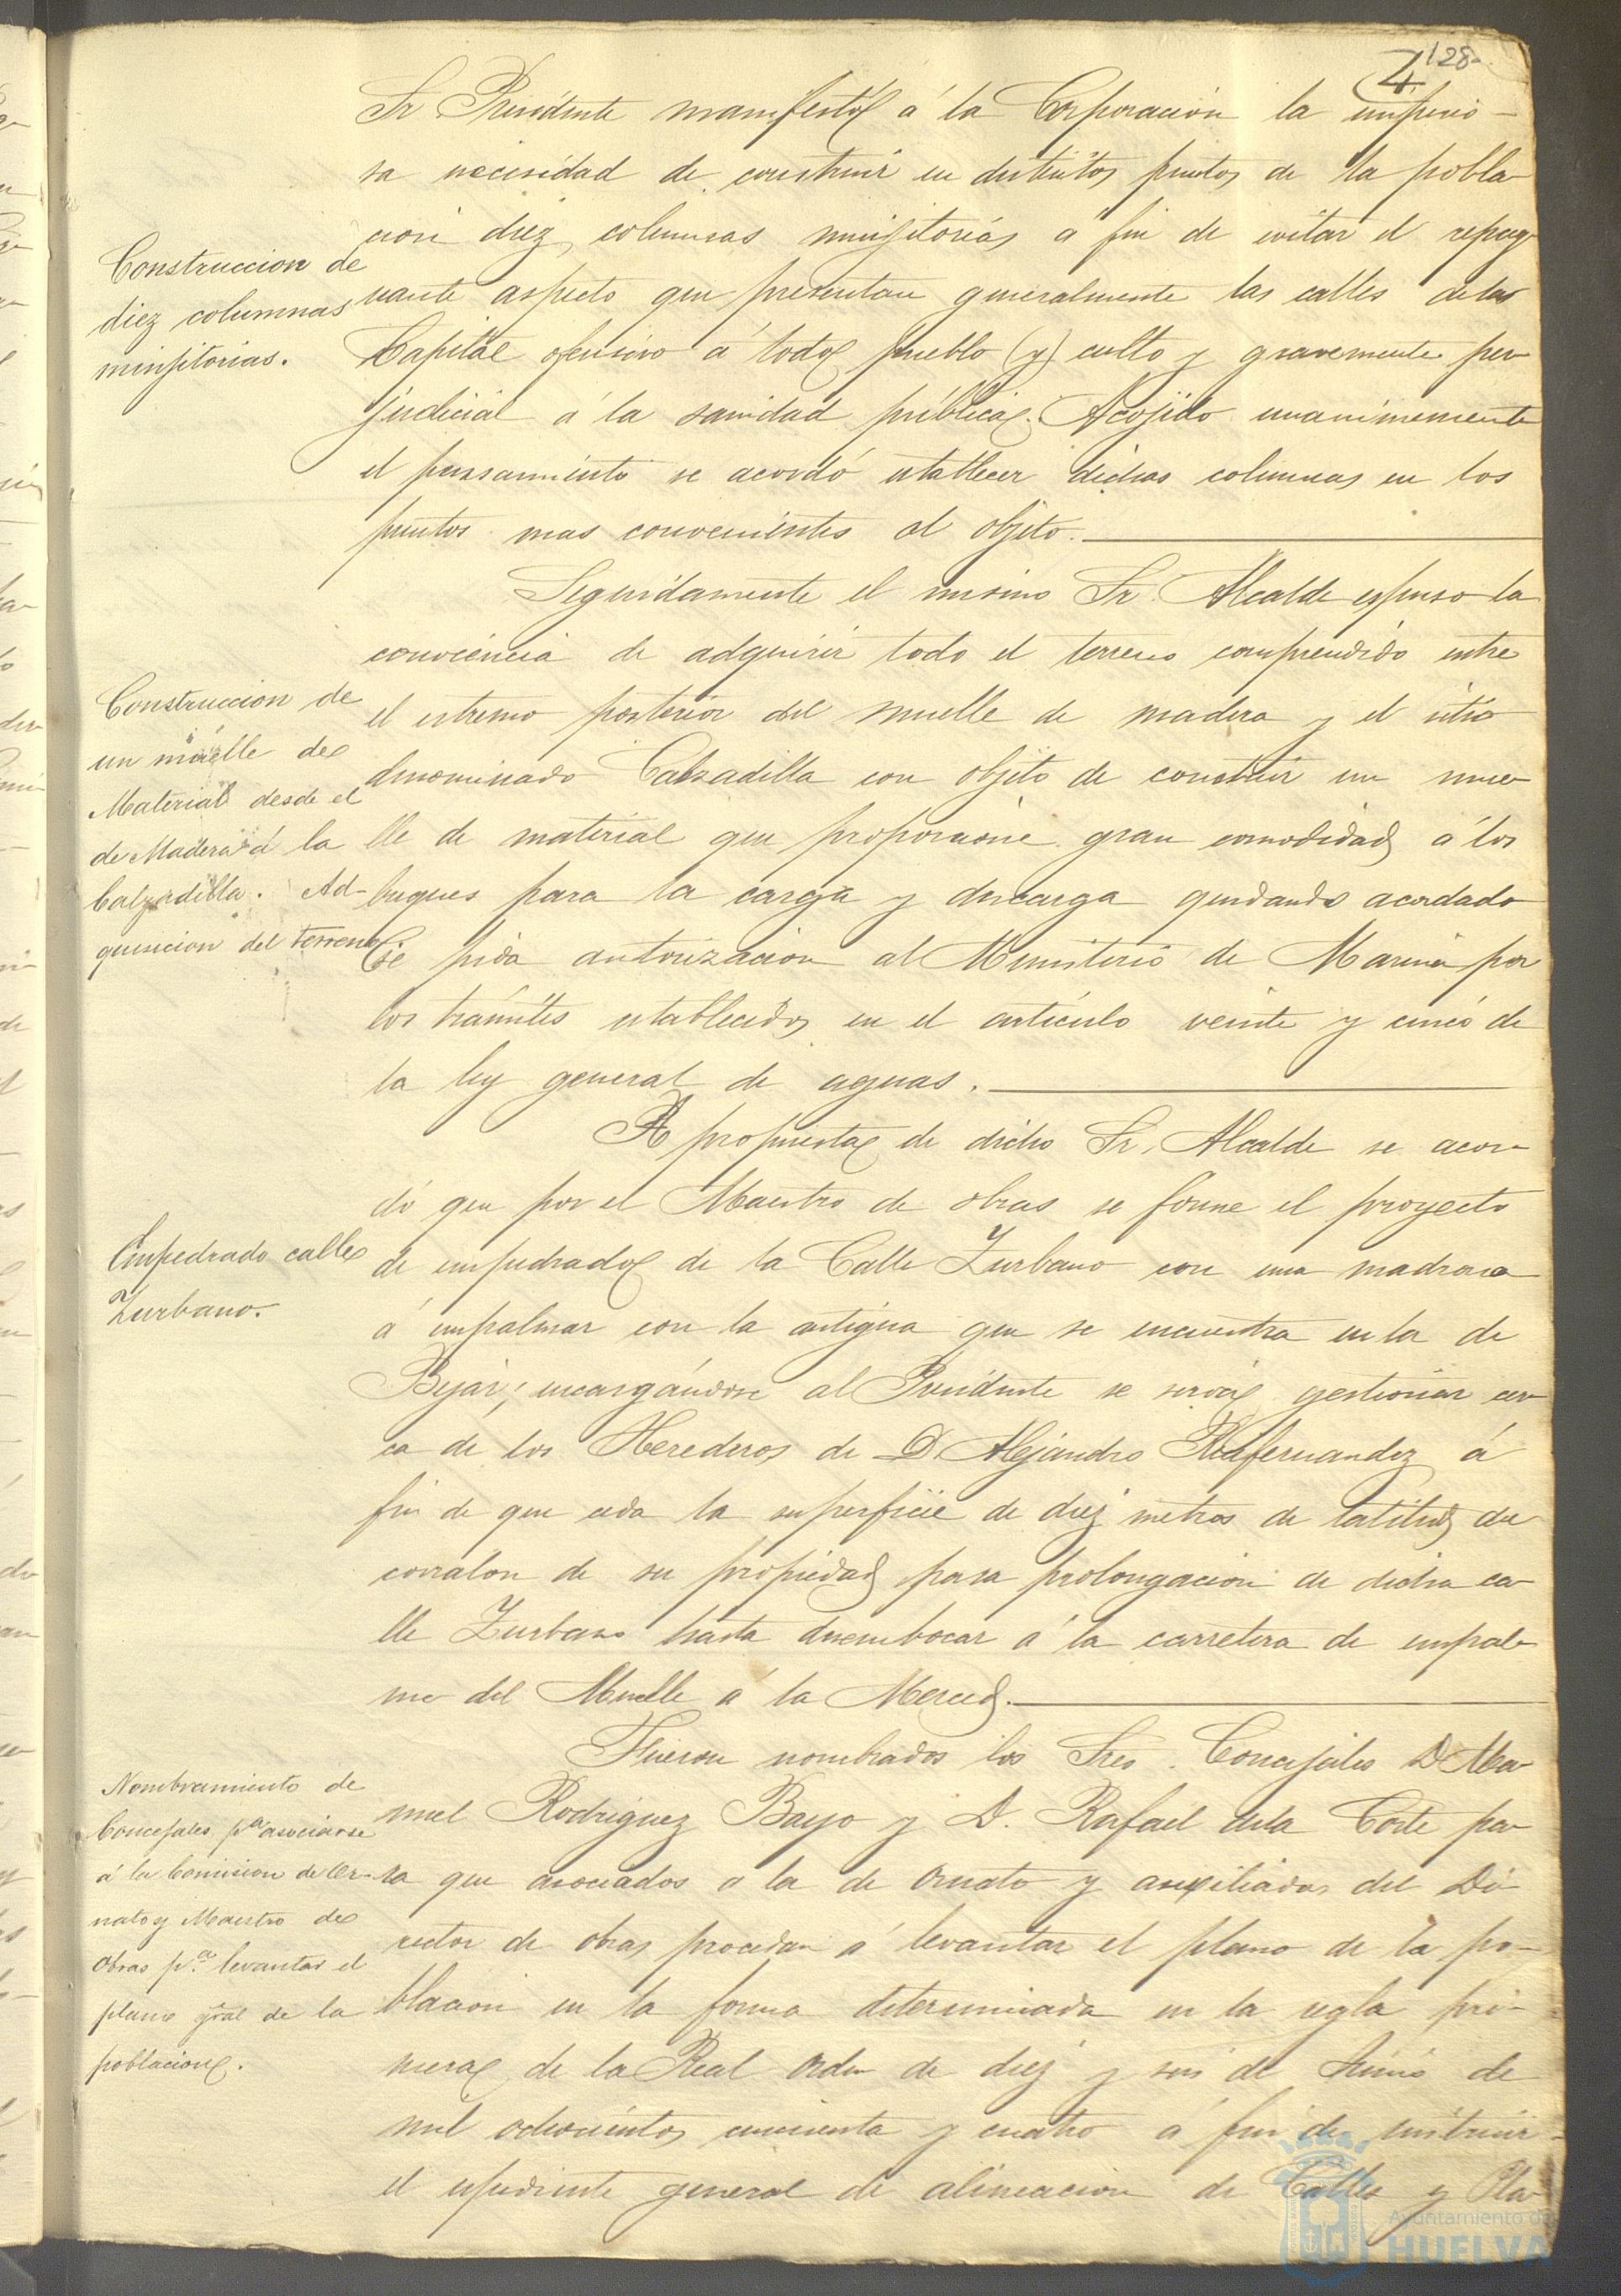 4 128
Sr Presidente manifestó á la Corporación la imperio-
sa necesidad de construir en distintos puntos de la pobla-
cion diez columnas minjitorias a fin de evitar el repug-
nante aspecto que presentan generalmente las calles de la
Capital ofensivo á todo pueblo (y) culto y gravemente per-
judicial á la sanidad pública. Acojido unanimemente
el pensamiento se acordó establecer dichas columnas en los
puntos mas convenientes al objeto.
Construccion de
diez columnas
minjitorias.
Seguidamente el mismo Sr. Alcalde espuso la
conveniencia de adquirir todo el terreno comprendido entre
el estremo posterior del muelle de madera y el sitio
denominado Calzadilla con objeto de construir un mue-
lle de material que proporcione gran comodidad á los
buques para la carga y descarga quedando acordado
se pida autorizacion al Ministerio de Marina por
los trámites establecidos en el artículo veinte y cinco de
la ley general de aguas.
Construccion de
un muelle de
Material desde el
de Madera á la
Calzadilla. Ad-
quisicion del terreno
A propuesta de dicho Sr. Alcalde se acor-
dó que por el Maestro de obras se forme el proyecto
de empedrado de la Calle Zurbano con una madrona
á empalmar con la antigua que se encuentra en la de
Bejar; encargándose al Presidente se sirva gestionar cer-
ca de los Herederos de D. Alejandro fernandez á
fin de que ceda la superficie de diez metros de latitud del
corralon de su propiedad para prolongacion de dicha ca-
lle Zurbano hasta desembocar á la carretera de empal-
me del Muelle á la Merced.
Empedrado calle
Zurbano.
Fueron nombrados los Sres. Concejales D Ma-
nuel Rodriguez Bayo y D. Rafael de la Corte pa-
ra que asociados a la de Ornato y auxiliados del Di-
rector de obras procedan á levantar el plano de la po-
blacion en la forma determinada en la regla pri-
mera de la Real orden de diez y seis de Junio de
mil ochocientos cincuenta y cuatro á fin de instruir
el espediente general de alineacion de Calles y Pla-
Nombramiento de
Concejales pa asociarse
á la Comision de Or-
nato y Maestro de
obras pa levantar el
plano gral de la
poblacion.
Ayuntamiento de
HUELVA